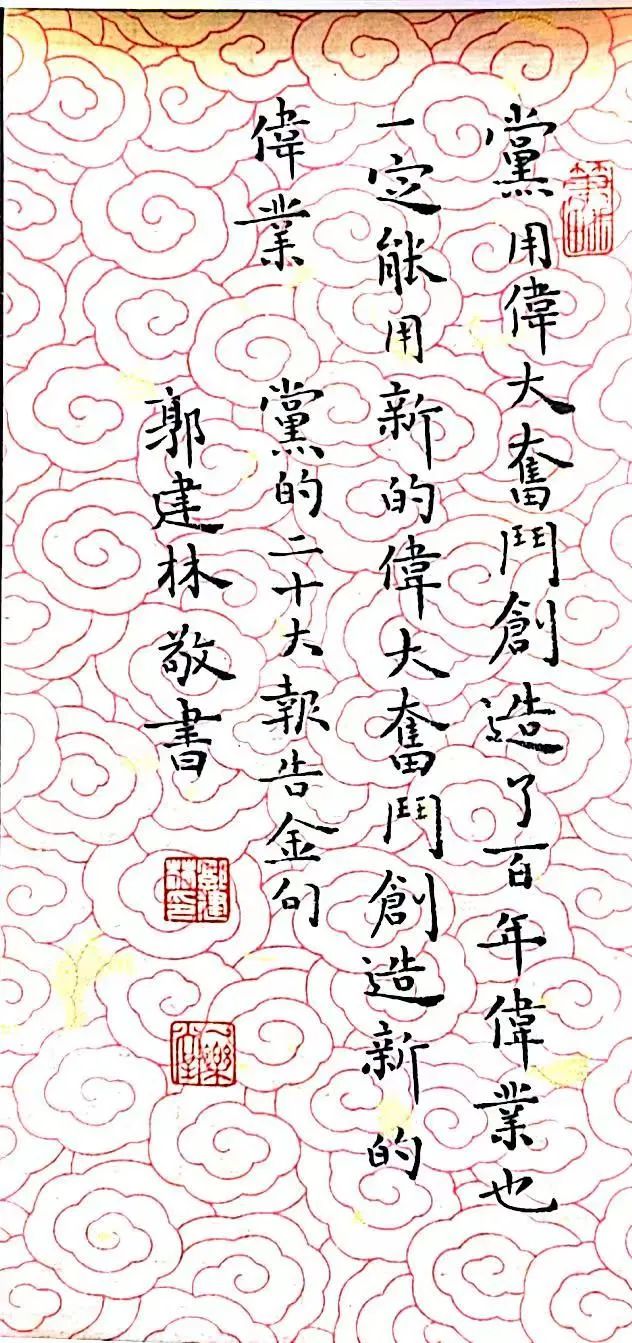 黨用偉大奮鬥創造了百年偉業也
一定能用新的偉大奮鬥創造新的
偉業
黨的二十大報告金句
郭建林敬書
郭建林印